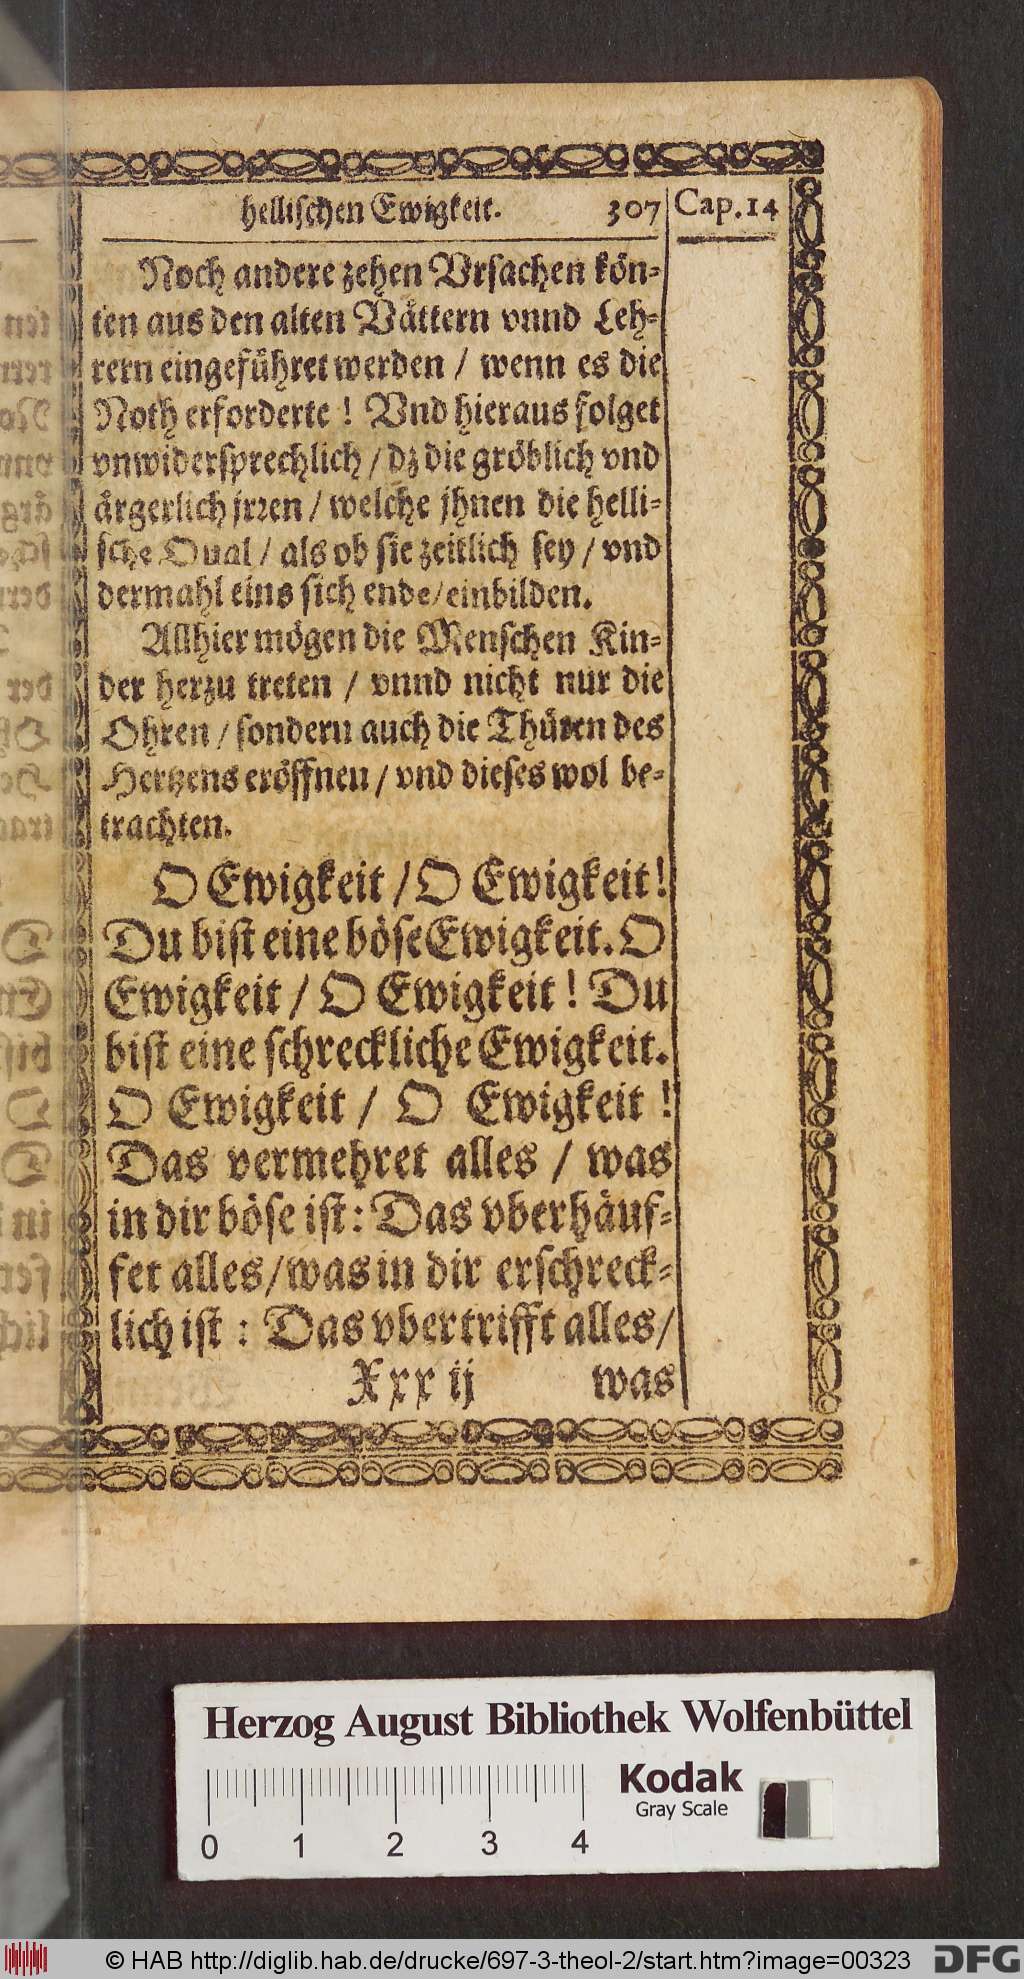 hellischen Ewigkeit. 307 Cap.14
Noch andere zehen Vrsachen kön-
ten aus den alten Vättern vnnd Leh-
rern eingeführet werden / wenn es die
Noth erforderte ! Vnd hieraus folget
vnwidersprechlich / dz die gröblich vnd
ärgerlich jrren / welche jhnen die helli-
sche Qual / als ob sie zeitlich sey / vnd
dermahl eins sich ende / einbilden.
Allhier mögen die Menschen Kin-
der herzu treten / vnnd nicht nur die
Ohren / sondern auch die Thüren des
Hertzens eröffnen / vnd dieses wol be-
trachten.
O Ewigkeit / O Ewigkeit!
Du bist eine böse Ewigkeit. O
Ewigkeit / O Ewigkeit ! Du
bist eine schreckliche Ewigkeit.
O Ewigkeit / O Ewigkeit !
Das vermehret alles / was
in dir böse ist : Das vberhäuf-
fet alles / was in dir erschreck-
lich ist : Das vbertrifft alles /
Xxx ij was
Herzog August Bibliothek Wolfenbüttel
Kodak
Gray Scale
0 1 2 3 4
© HAB http://diglib.hab.de/drucke/697-3-theol-2/start.htm?image=00323 DFG